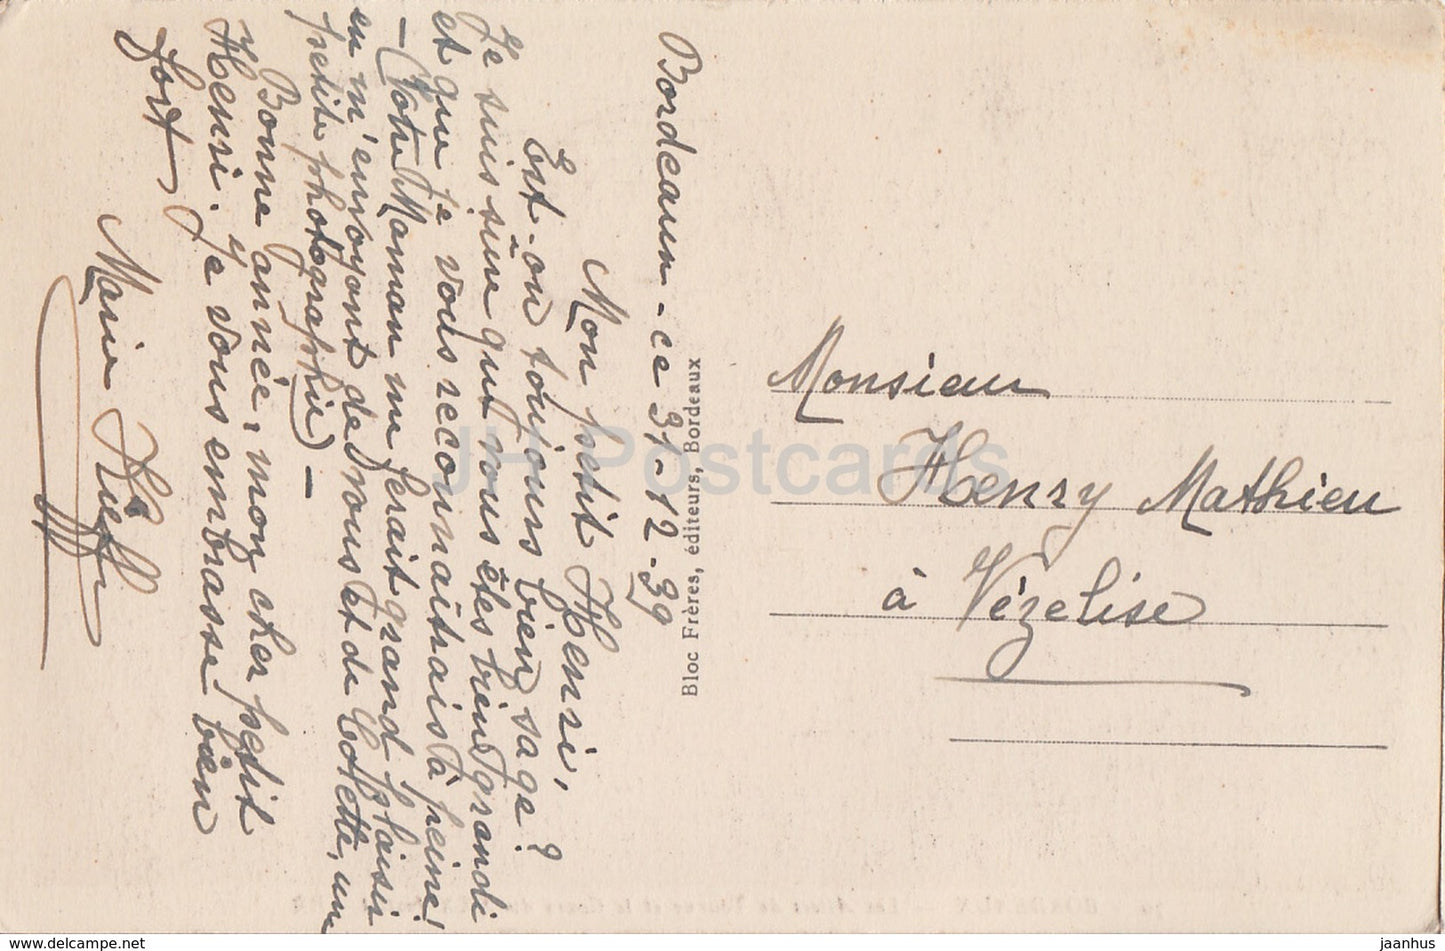 Bordeaux - ce 31-12-39
Mon petit Henri,
Est-on toujours bien sage ?
Je suis sûre que vous êtes bien grandi
et que je vous reconnaîtrais à peine !
- (Votre Maman me ferait grand plaisir
en m'envoyant de vous et de Collette, une
petite photographie) -
Bonne année, mon cher petit
Henri. Je vous embrasse bien
fort
Marie
Bloc Frères, éditeurs, Bordeaux
Monsieur
Henry Mathieu
à Vézelise
JH Postcards
BORDEAUX
www.delcampe.net
jaanhus